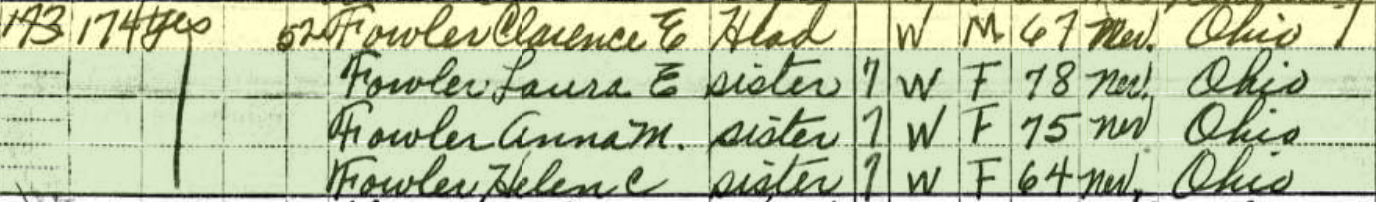 173 174 yes 52 Fowler Clarence E Head W M 67 Nev. Ohio 1
Fowler Laura E sister 7 W F 78 Nev. Ohio
Fowler Anna M. sister 7 W F 75 Nev Ohio
Fowler Helen C sister 7 W F 64 Nev. Ohio